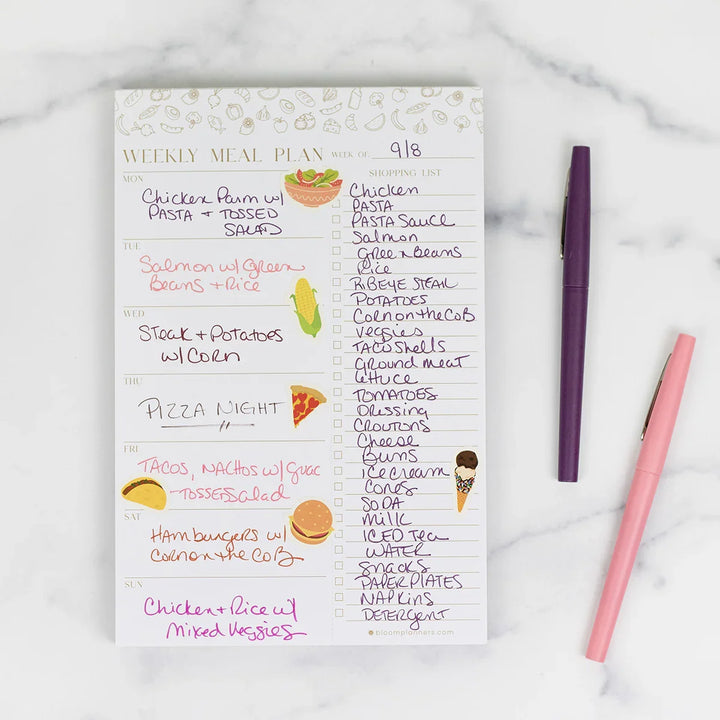 WEEKLY MEAL PLAN
WEEK OF: 9/8
MON
Chicken Parm w/
PASTA + TOSSED
SALAD
TUE
Salmon w/ Green
Beans + Rice
WED
Steak + Potatoes
w/ Corn
THU
PIZZA NIGHT
FRI
TACOS, NACHOS w/ Guac
- TOSSED Salad
SAT
Hamburgers w/
Corn on the CoB
SUN
Chicken + Rice w/
Mixed Veggies
SHOPPING LIST
Chicken
PASTA
PASTA Sauce
Salmon
Green Beans
Rice
RiBEYE STEAK
POTATOES
Corn on the CoB
Veggies
TACO Shells
Ground meat
lettuce
TOMATOES
Dressing
CROUTONS
Cheese
Buns
Ice Cream
Cones
SODA
Milk
ICED Tea
WATER
Snacks
PAPER PLATES
NAPKINS
DETERGENT
bloomplanners.com